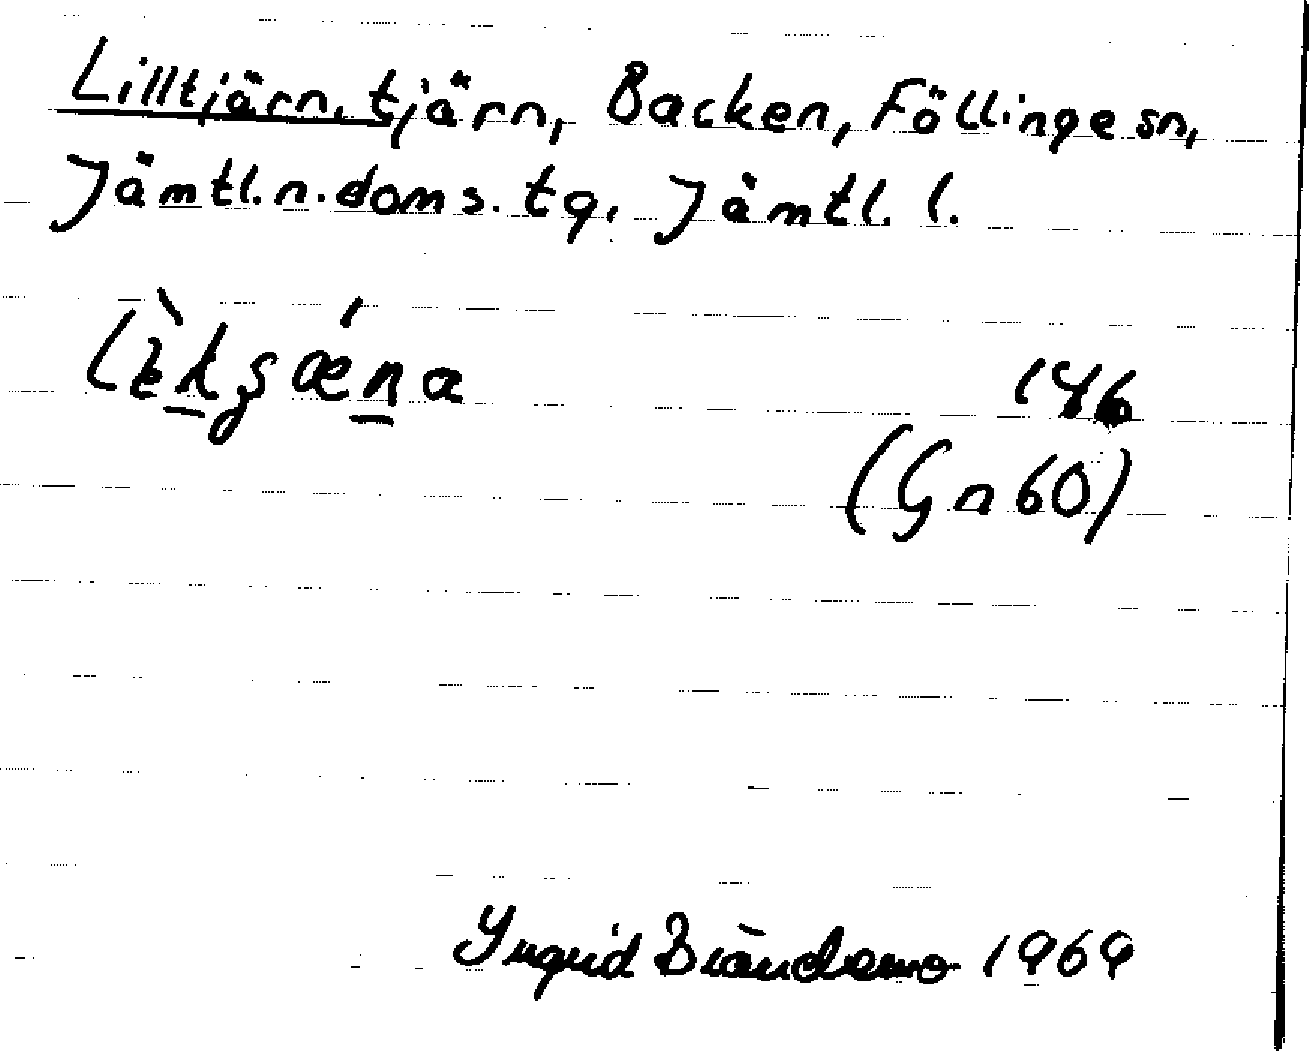 Lilltjärn, tjärn, Backen, Föllinge sn,
Jämtl. n. doms. tg. Jämtl. l.
186
(Gn 60)
Ingrid Brändemo 1969